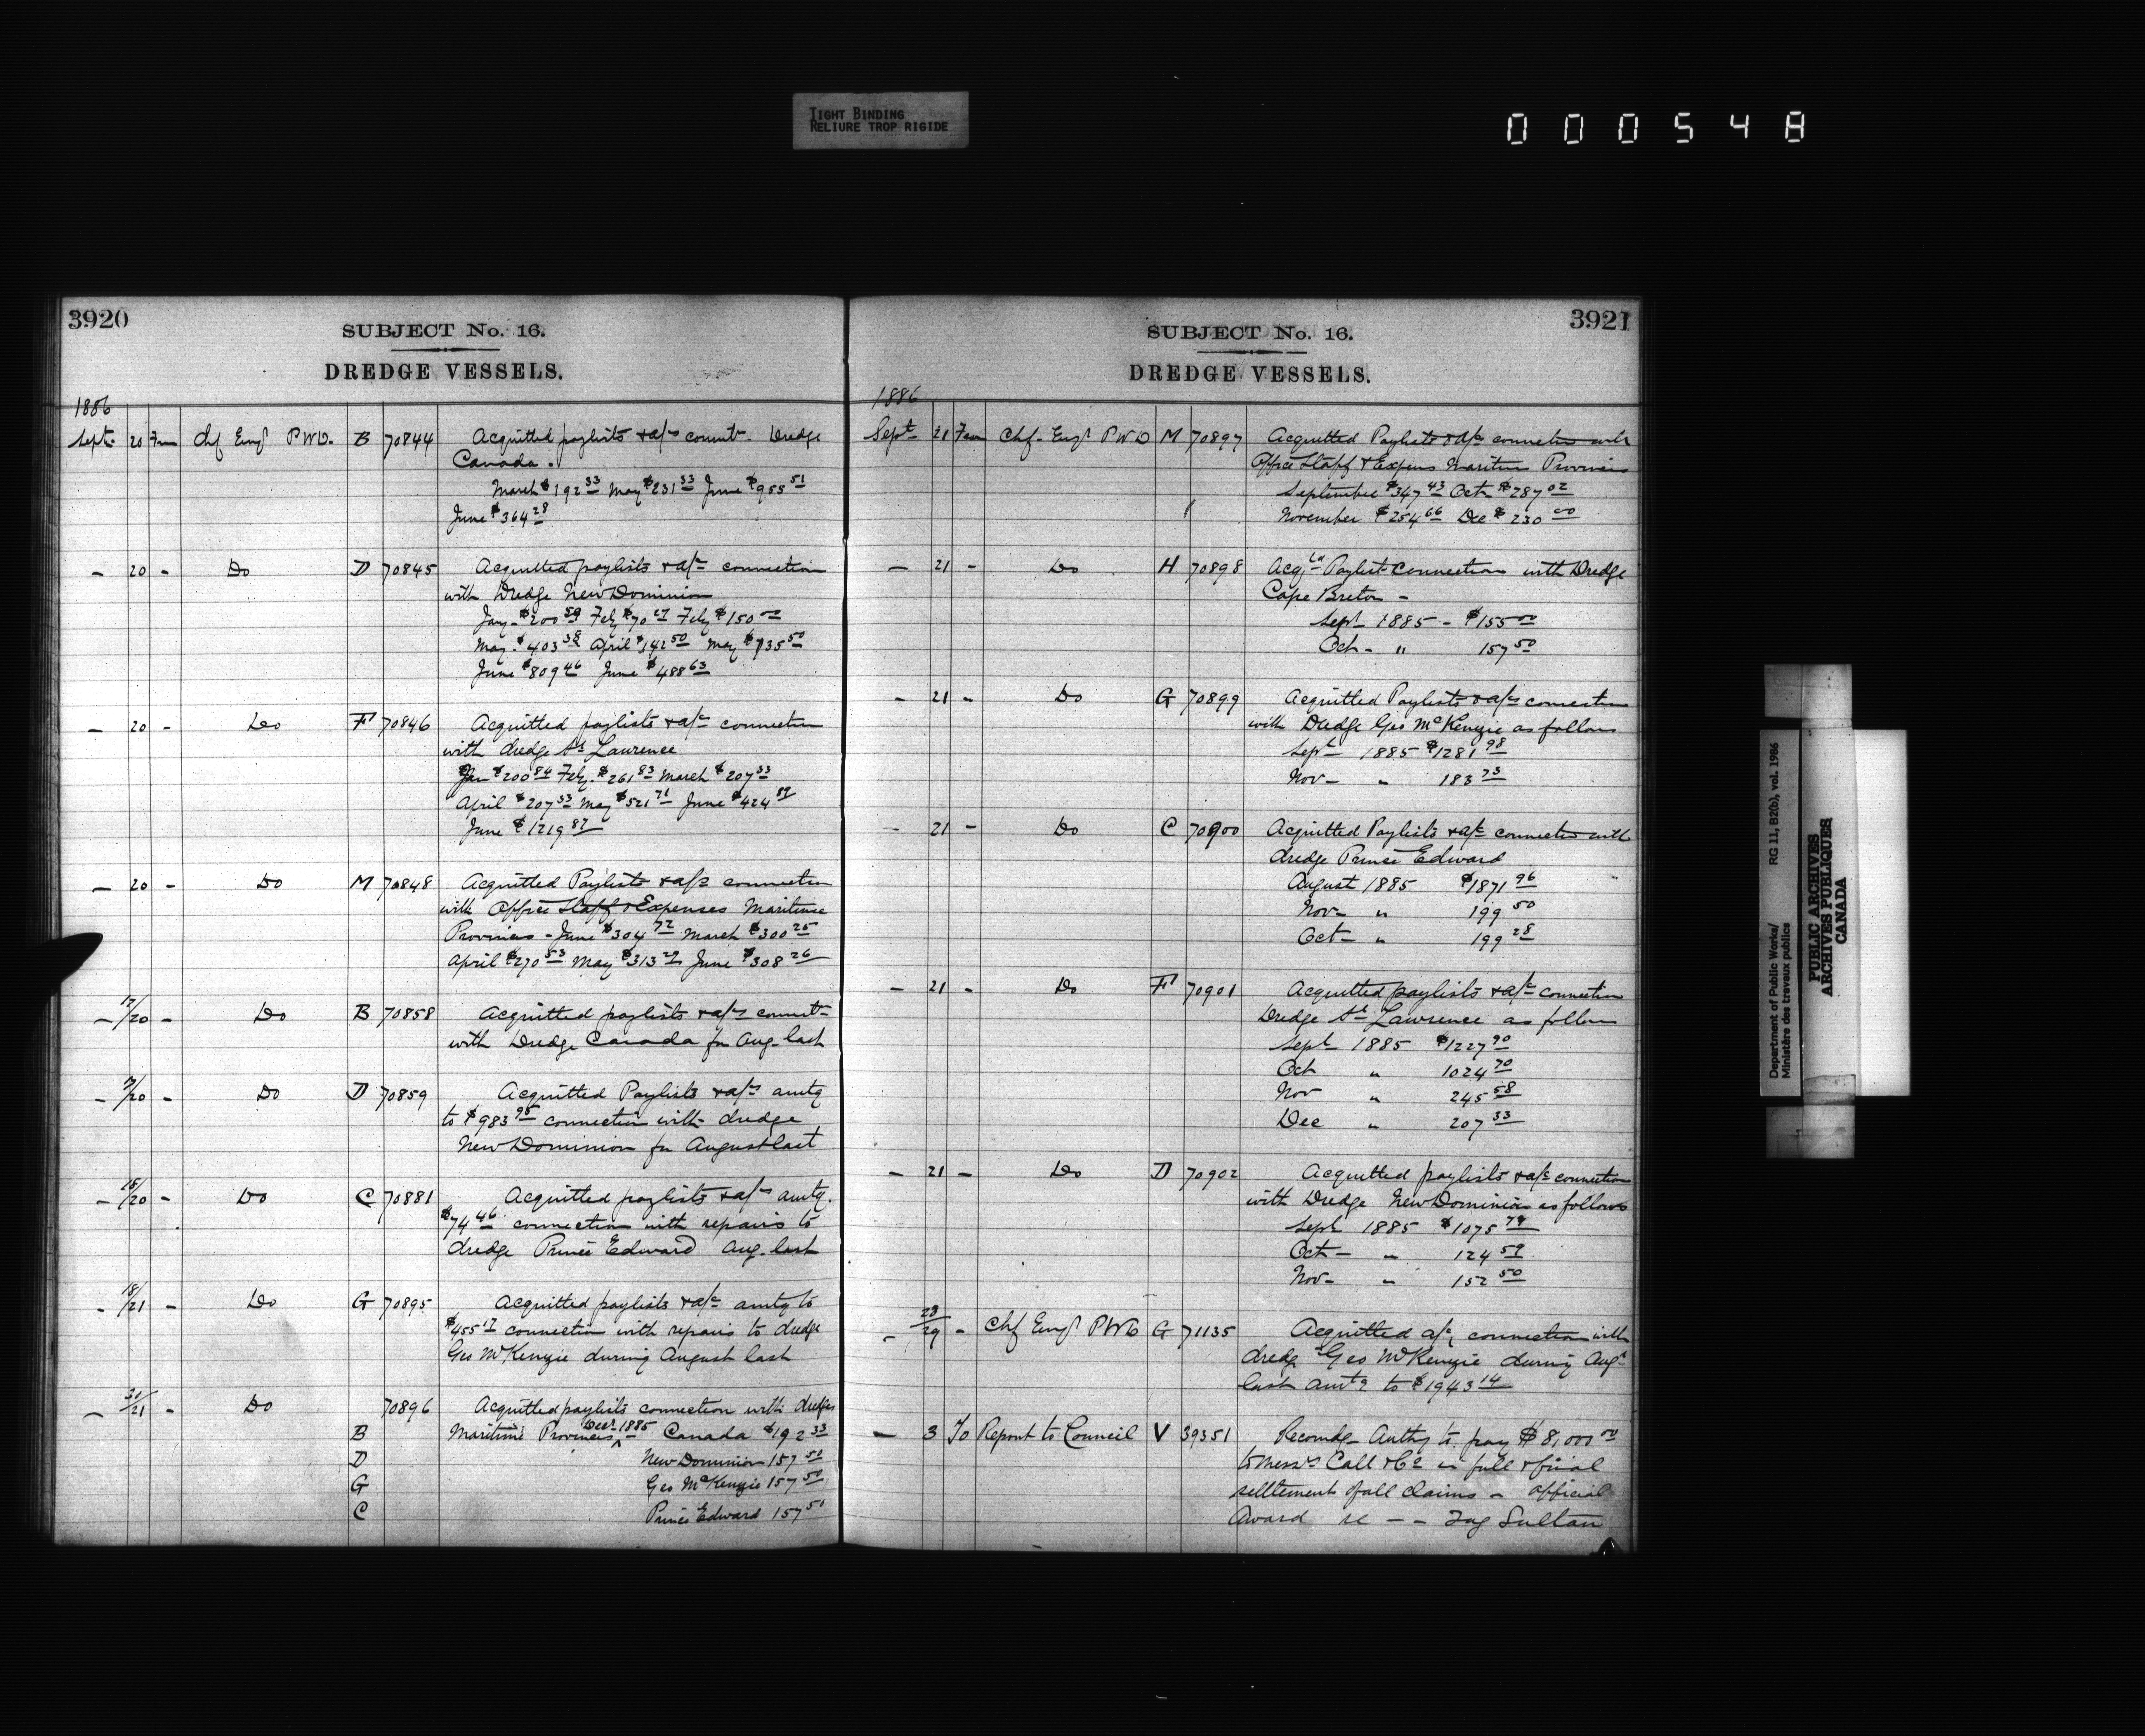 TIGHT BINDING
RELIURE TROP RIGIDE
000548
3920
SUBJECT No. 16.
DREDGE VESSELS.
1886
Sept. 20 Fm Chf Engr P.W.D. B 70844 Acquitted paylists & a/cs connt. Dredge
Canada.
March $192 33 May $231 33 June $955 51
June $364 28
— 20 - Do D 70845 Acquitted paylists & a/cs connection
with Dredge New Dominion
Jany. $200 59 Feby $70 27 Feby $150 00
May. $403 38 April $142 50 May $135 50
June $809 46 June $488 63
— 20 - Do F 70846 Acquitted paylists & a/cs connection
with dredge St Lawrence
Jan $200 84 Feby. $261 83 March $207 33
April $207 33 May $521 71 June $424 89
June $1219 87
— 20 - Do M 70848 Acquitted Paylists & a/cs connection
with Office Staff & Expenses Maritime
Provinces - June $304 72 March $300 25
April $270 53 May $313 29 June $308 26
— 17/20 - Do B 70858 Acquitted paylists & a/cs connt
with Dredge Canada for Aug. last
— /20 - Do D 70859 Acquitted Paylists & a/cs amtg
to $983 95 connection with dredge
New Dominion for August last
— 18/20 - Do C 70881 Acquitted paylists & a/cs amtg.
$74 46 connection with repairs to
dredge Prince Edward Aug. last
- 18/21 - Do G 70895 Acquitted paylists & a/cs amtg to
$455 17 connection with repairs to dredge
Geo McKenzie during August last
— /21 - Do 70896 Acquitted paylists connection with dredges
B Maritime Provinces Decr. 1885 Canada $192 33
D New Dominion 157 50
G Geo McKenzie 157 50
C Prince Edward 157 50
3921
SUBJECT No. 16.
DREDGE VESSELS.
1886
Sept 21 Fm Chf. Engr P.W.D M 70897 Acquitted Paylists & a/cs connection with
Office Staff & Expens Maritime Provinces
September $347 43 Oct $287 02
November $254 66 Dec $230 00
— 21 - Do H 70898 Acqtd Paylist Connection with Dredge
Cape Breton -
Sept 1885 - $155 00
Oct - " 157 50
— 21 - Do G 70899 Acquitted Paylists & a/cs connection
with Dredge Geo McKenzie as follows
Sept 1885 $1281 98
Nov - " 183 73
- 21 - Do C 70900 Acquitted Paylists & a/cs connection with
dredge Prince Edward
August 1885 $1871 96
Nov - " 199 50
Oct - " 199 28
- 21 - Do F 70901 Acquitted paylists & a/cs connection
Dredge St Lawrence as follows
Sept 1885 $1227 90
Oct " 1024 70
Nov " 245 58
Dec " 207 33
— 21 - Do D 70902 Acquitted paylists & a/cs connection
with Dredge New Dominion as follows
Sept 1885 $1075 79
Oct - " 124 59
Nov - " 152 50
- 28/29 - Chf Engr P.W.D G 71135 Acquitted a/cs connection with
dredg Geo McKenzie during Augt
last amtg to $1943 14
— 3 To Report to Council V 39351 Recomdg Authy to pay $8,000 00
to Messrs Call & Co in full & final
settlement of all claims - official
Award re - - Tug Sultan
Department of Public Works/ RG 11, B2(b), vol. 1986
Ministère des travaux publics
PUBLIC ARCHIVES
ARCHIVES PUBLIQUES
CANADA